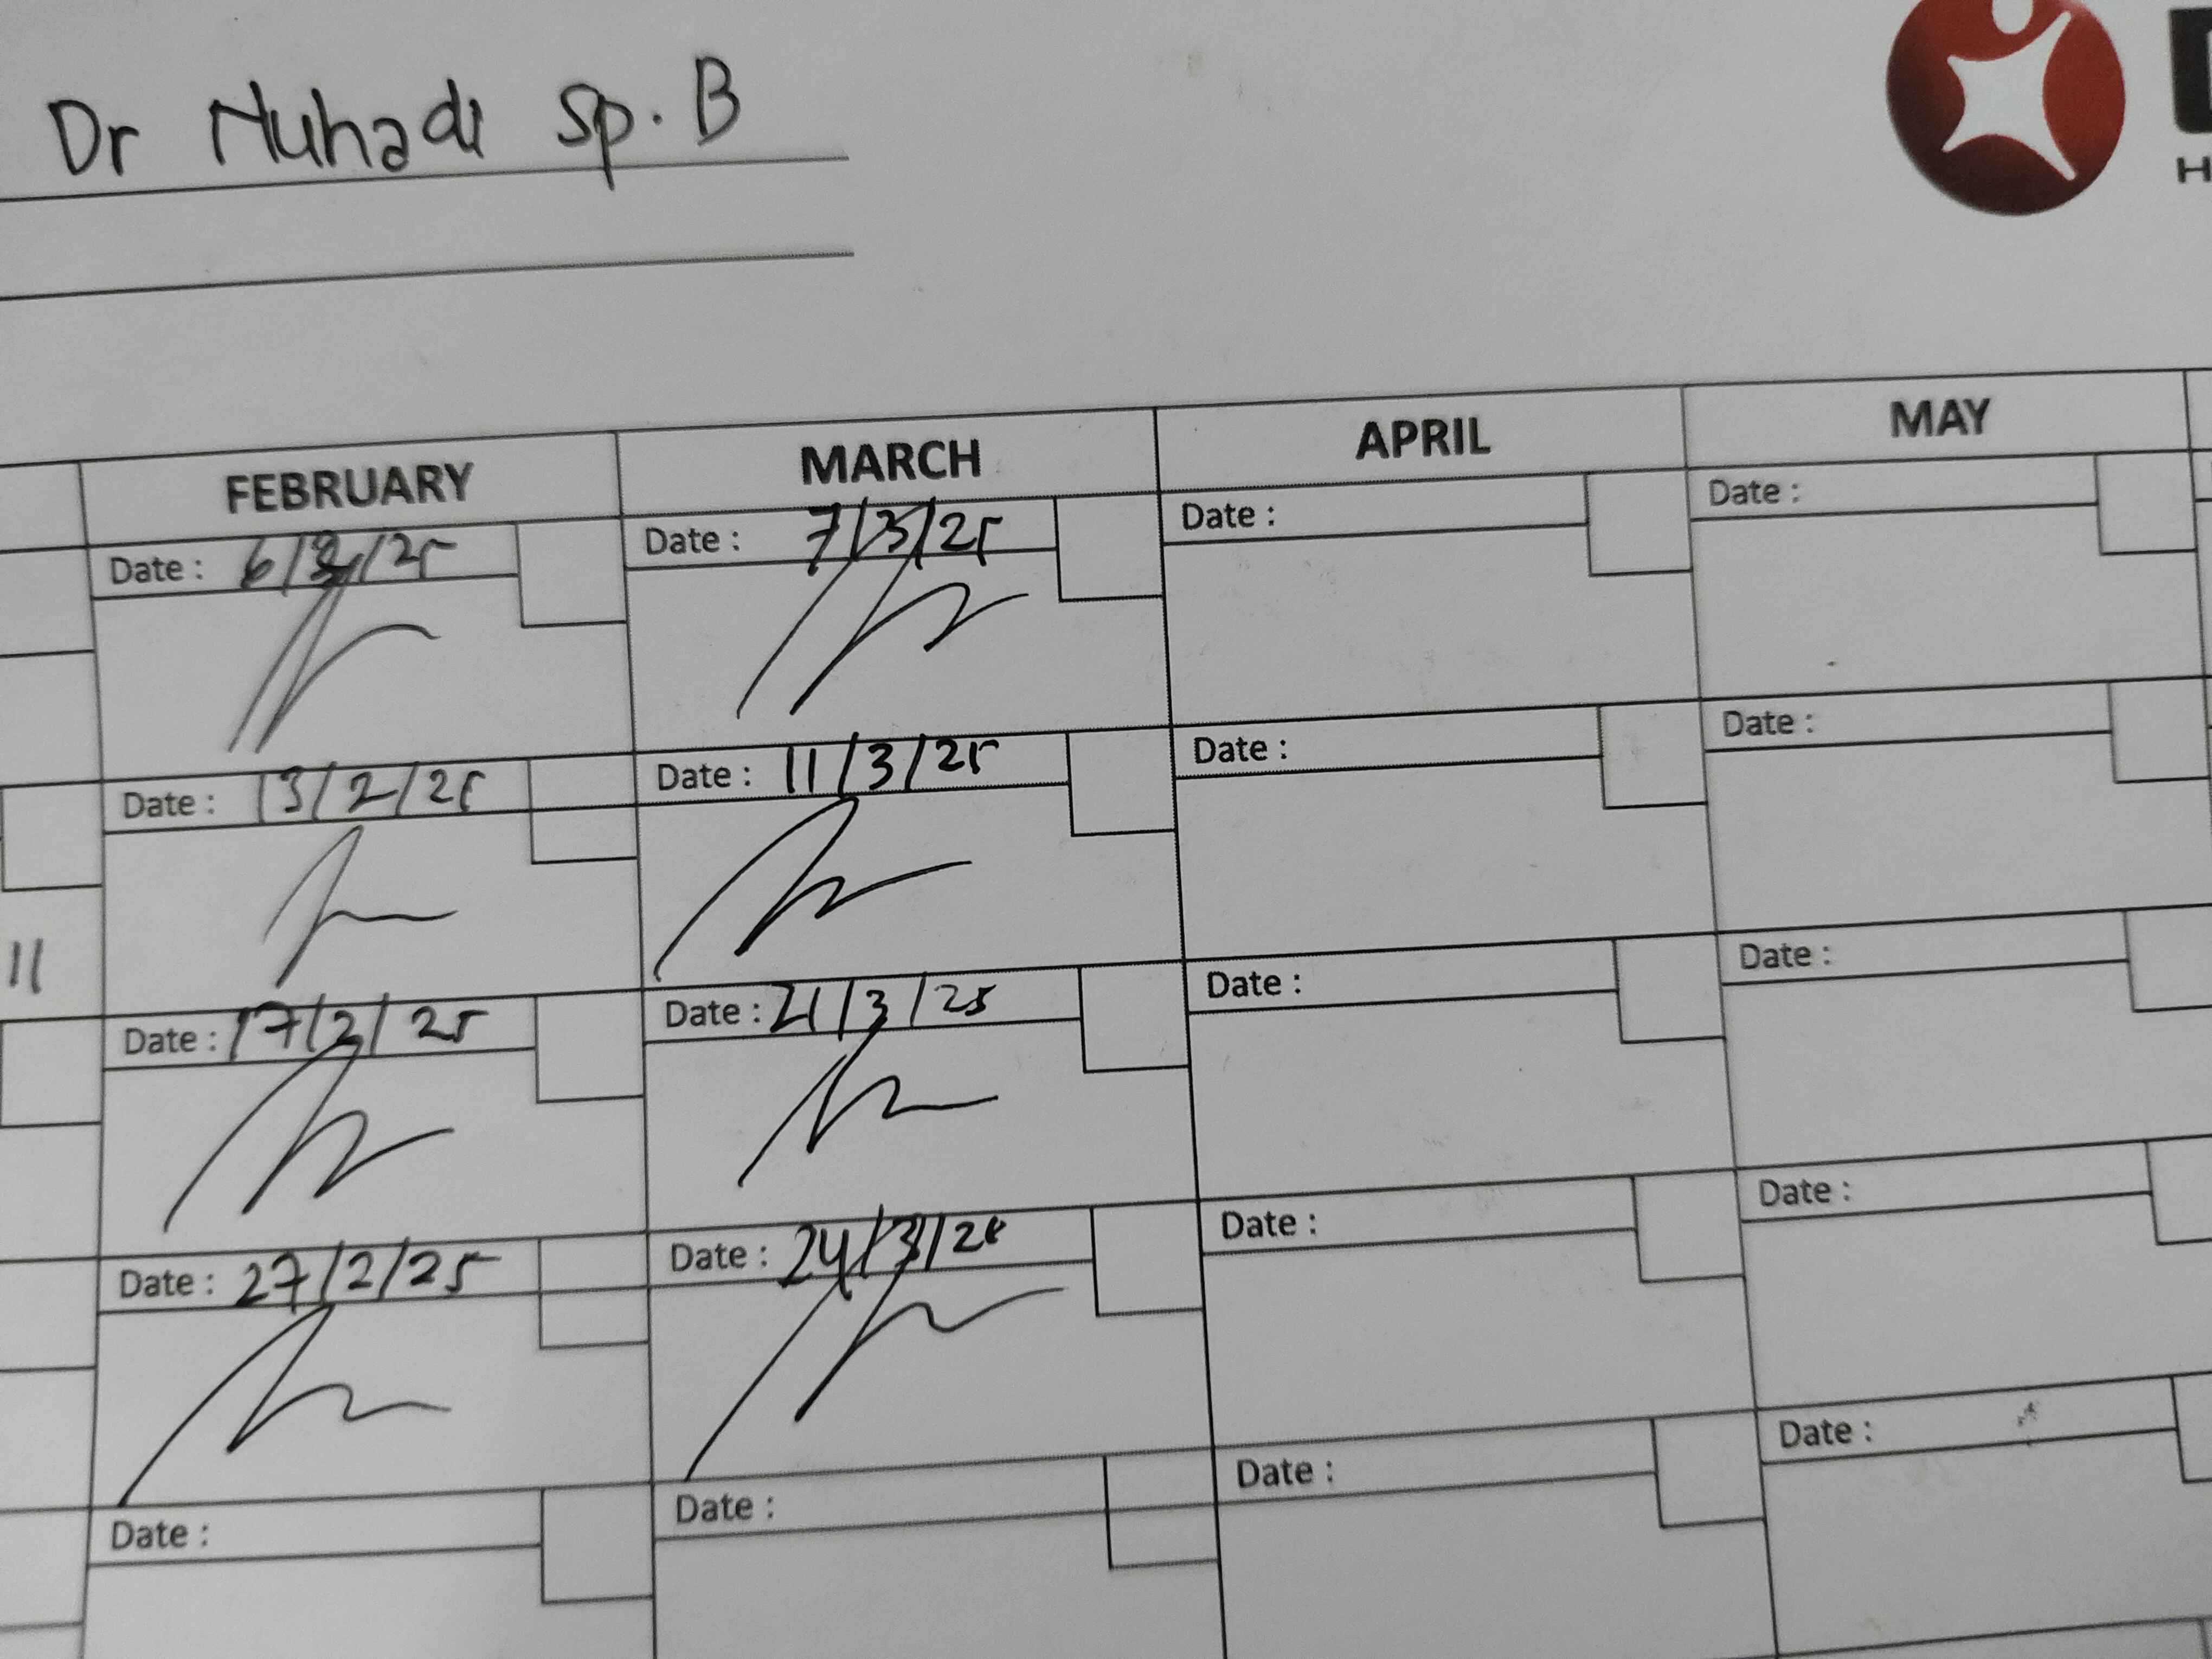 Dr Nuhadi Sp. B
H
FEBRUARY MARCH APRIL MAY
Date : 6/2/25 Date : 7/3/25 Date : Date :
Date : 13/2/25 Date : 11/3/25 Date : Date :
11
Date : 17/2/25 Date : 21/3/25 Date : Date :
Date : 27/2/25 Date : 24/3/25 Date : Date :
Date : Date : Date : Date :